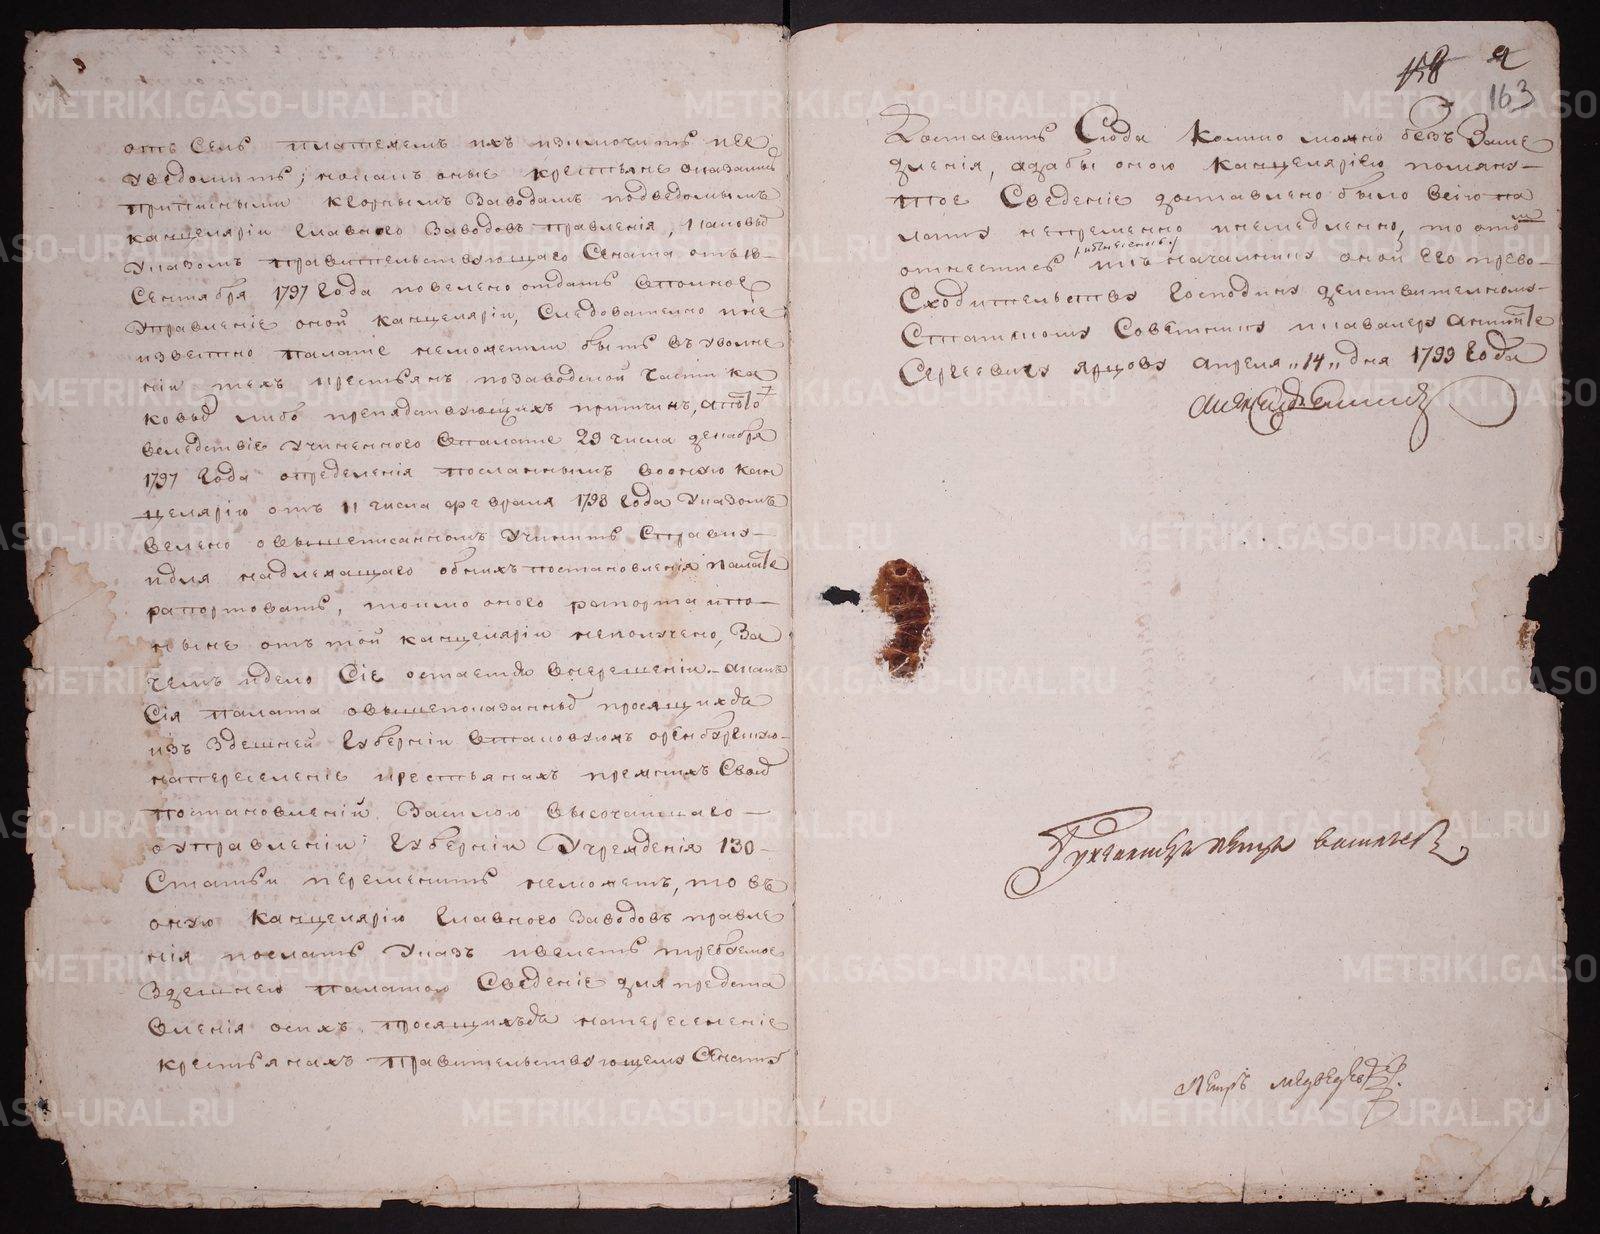 отъ селъ платежемъ ихъ изключить и ее
уведомить; но какъ оные крестьяне оказались
приписными к горнымъ заводамъ подведомымъ
канцелярии главного заводовъ правления, каковых
указомъ правительствующаго Сената отъ 18
Сентября 1797 года повелено отдать в полное
управление оной канцелярии, следователно и не
известно палате немогутли быть въ уволне
нии техъ крестьянъ по заводской части ка
ковых либо препядствующихъ притчинъ, а по то
вследствие учиненного в палате 29 числа декабря
1797 года определения посланнымъ во оную кан
целярию отъ 11 числа февраля 1798 года указомъ
велено о вышеписанномъ учинить справку
и для надлежащаго обнихъ постановления палате
рапортовать, токмо оного рапорта и по
ныне отъ той канцелярии неполучено, за
чемъ и дело сие остается в нерешении. а какъ
сия палата о вышепоказанных просящихся
изъ здешней губернии в таковуюжъ оренбургскую
на переселение крестьянахъ прежнихъ своих
постановлений засилою высочайшаго
о управлении губернии учреждения 130
статьи переменить неможетъ, то въ
оную канцелярию главного заводовъ правле
ния послать указъ и велеть требуемое
здешнею палатою сведение для предста
вления осихъ просящихся на переселение
крестьянахъ правительствующему Сенату
158
163
Доставить сюда колико можно безъ заме
дления, адабы оною канцеляриею помяну
тое сведение доставлено было в сию па
лату непременно и немедленно, то о том
отнестись къ начальнику оной его прево
сходительству господину действительному
статскому советнику и кавалеру Аниките
Сергеевичу Ярцову апреля „14„ дня 1799 года
Петръ Медведевъ